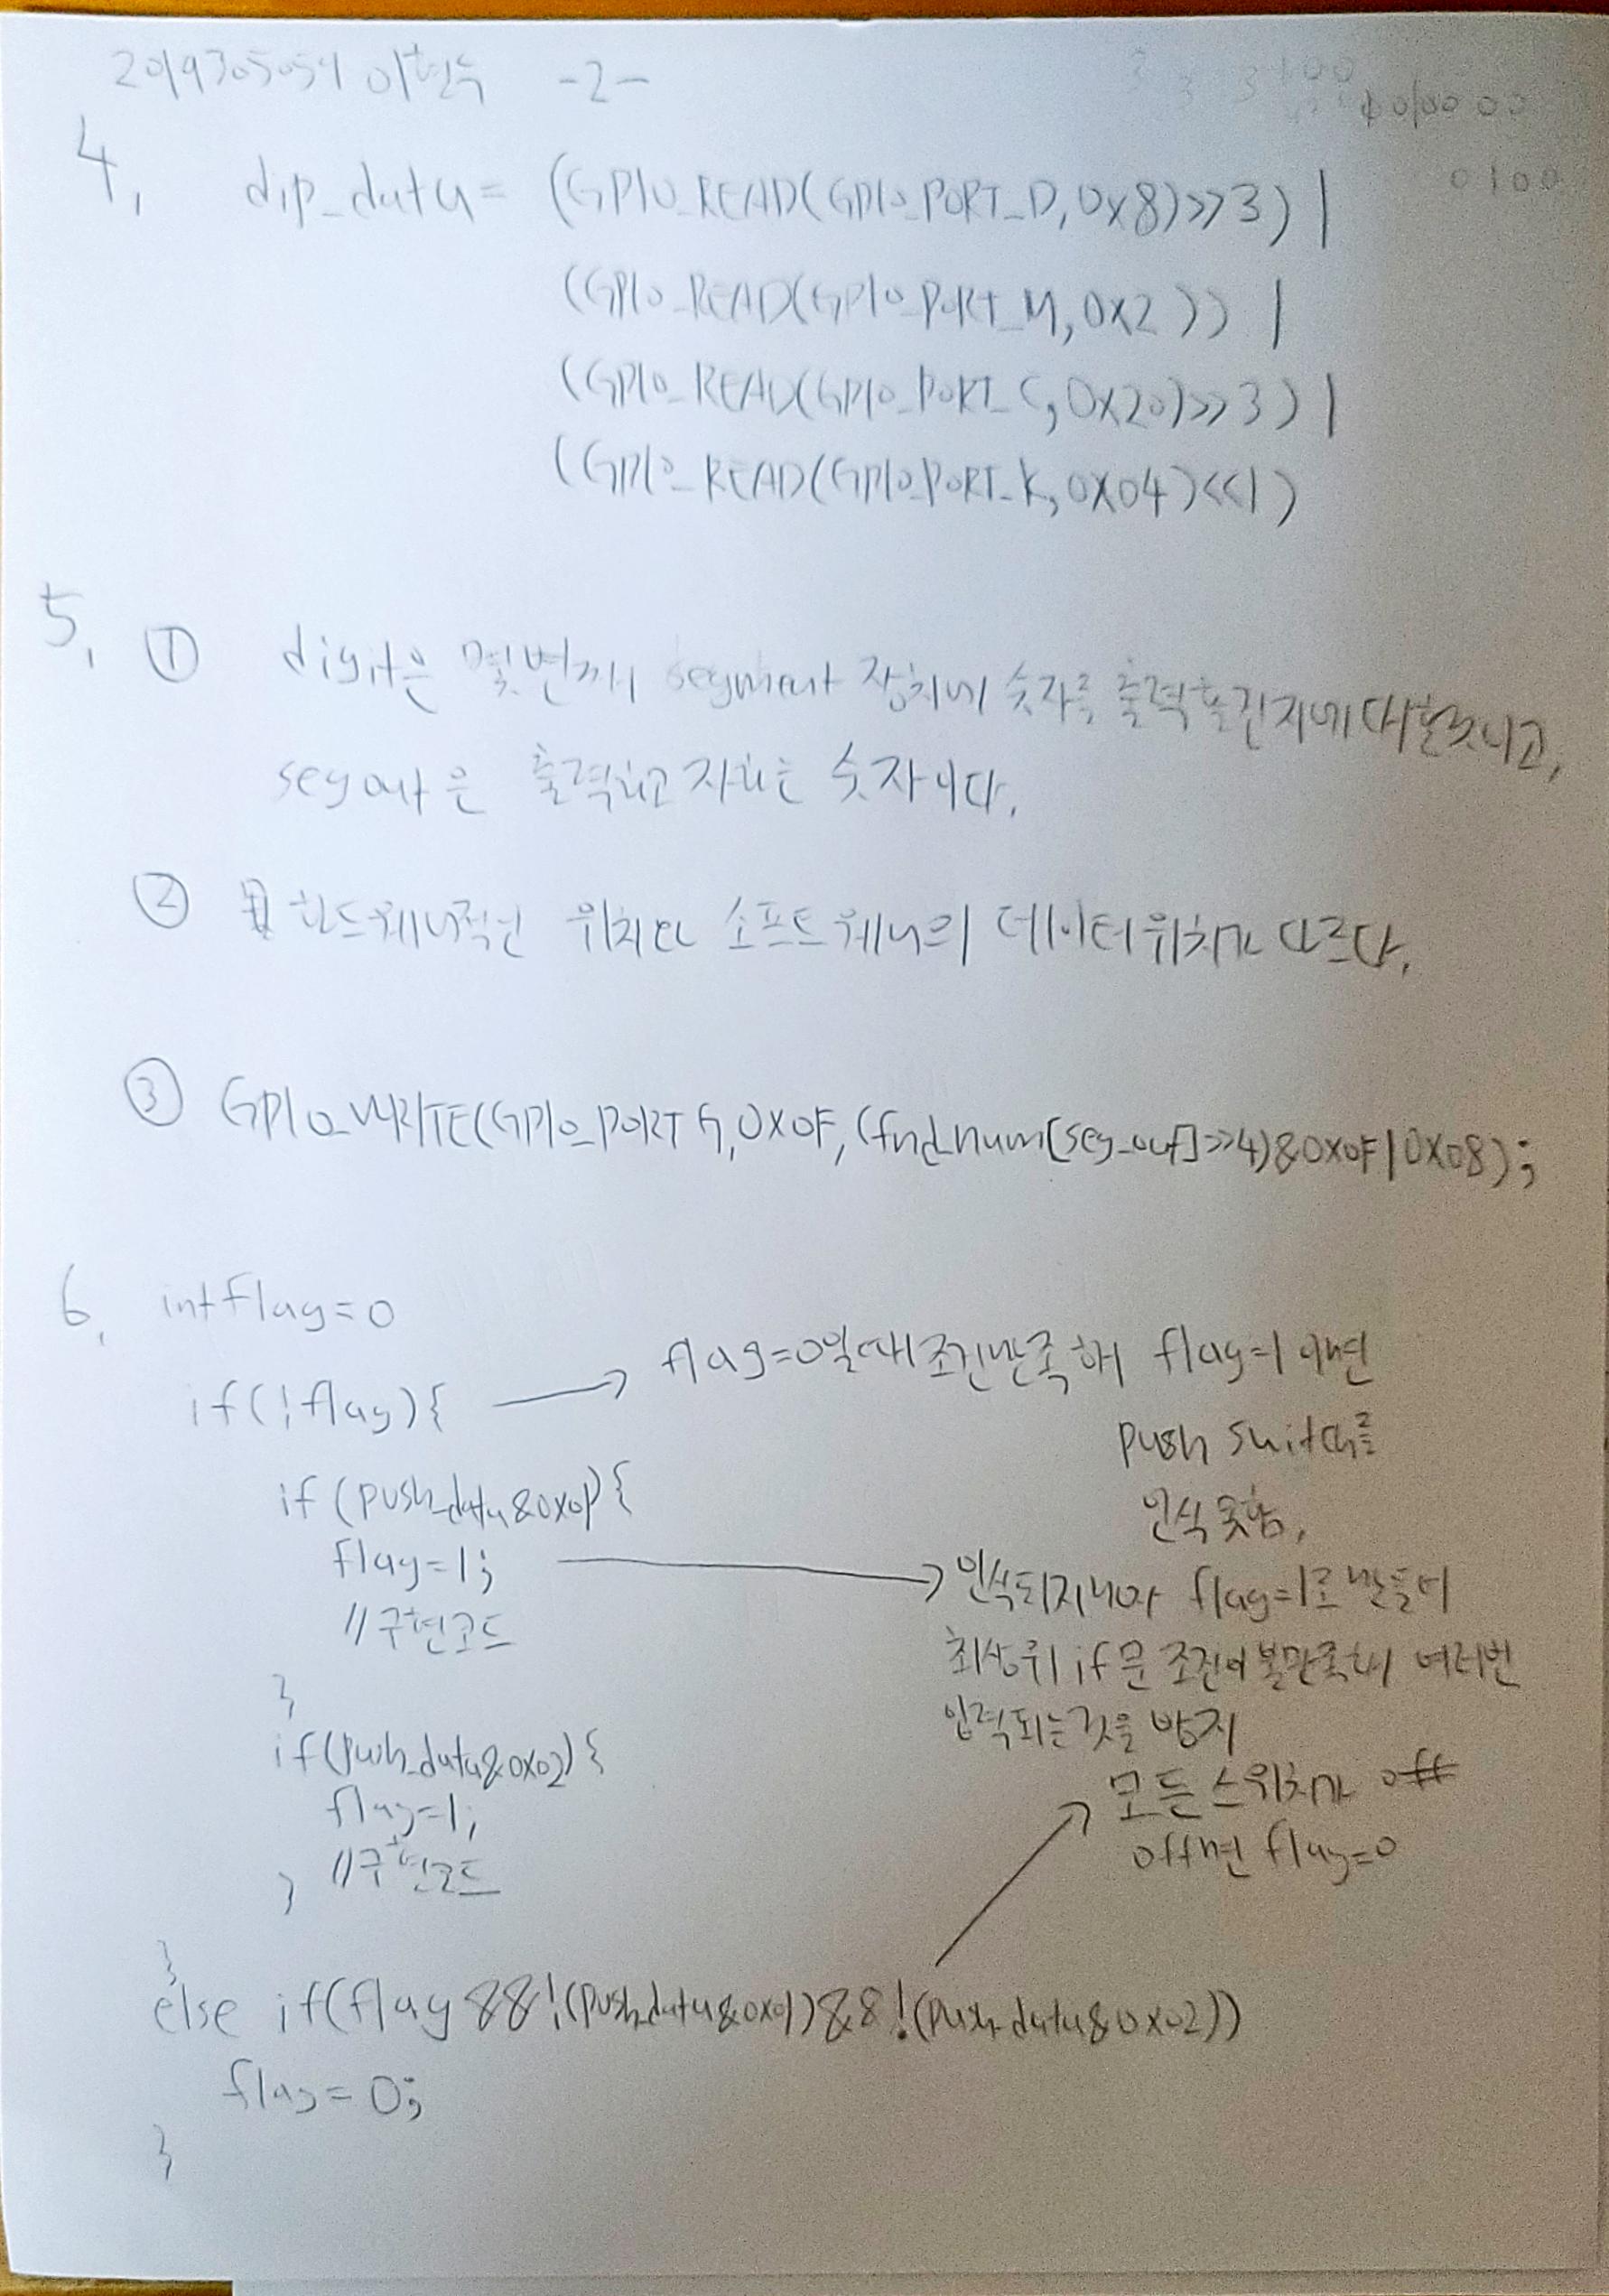 -2-
4, dip_data= (GPIO_READ(GPIO_PORT_D,0x8)>>3) |
(GPIO_READ(GPIO_PORT_M,0x2)) |
(GPIO_READ(GPIO_PORT_C,0x20)>>3) |
(GPIO_READ(GPIO_PORT_K,0x04)<<1)
5, ① digit은 몇번째 segment 장치에 숫자를 출력할건지에 대한것이고,
seg out은 출력하고자하는 숫자이다.
② 하드웨어적인 위치와 소프트웨어의 데이터위치가 다르다.
③ GPIO_WRITE(GPIO_PORT G,0x0F,(fnd_num[seg_out]>>4)&0x0F|0x08);
6, int flag=0
if(!flag){ → flag=0일때 조건만족해 flag=1 이면
push switch를
인식 못함,
if(push_data&0x01){
flag=1; → 인식되자마자 flag=1로 만들어
//구현코드
최상위 if문 조건이 불만족해 여러번
}
입력되는것을 방지
if(push_data&0x02){
모든 스위치가
flag=1;
off면 flag=0
//구현코드
}
}
else if(flag &&!(push_data&0x01)&&!(push_data&0x02))
flag=0;
}